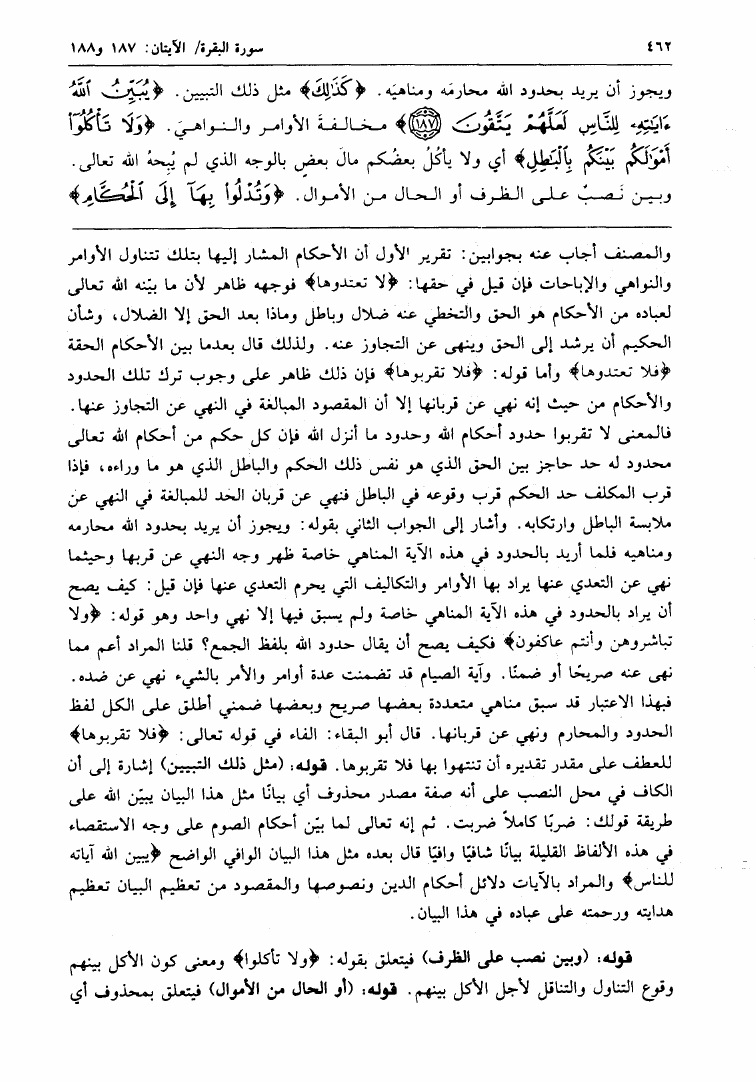 ٤٦٢
سورة البقرة/ الآيتان: ١٨٧ و١٨٨
ويجوز أن يريد بحدود الله محارمَه ومناهيَه. ﴿كَذَٰلِكَ﴾ مثل ذلك التبيين. ﴿يُبَيِّنُ ٱللَّهُ
ءَايَٰتِهِۦ لِلنَّاسِ لَعَلَّهُمْ يَتَّقُونَ ١٨٧﴾ مخالفةَ الأوامر والنواهيَ. ﴿وَلَا تَأْكُلُوٓا۟
أَمْوَٰلَكُم بَيْنَكُم بِٱلْبَٰطِلِ﴾ أي ولا يأكلُ بعضُكم مالَ بعضٍ بالوجه الذي لم يُبِحهُ الله تعالى.
وبين نَصبٌ على الظرف أو الحال من الأموال. ﴿وَتُدْلُوا۟ بِهَآ إِلَى ٱلْحُكَّامِ﴾
والمصنف أجاب عنه بجوابين: تقرير الأول أن الأحكام المشار إليها بتلك تتناول الأوامر
والنواهي والإباحات فإن قيل في حقها: ﴿لا تعتدوها﴾ فوجهه ظاهر لأن ما بيّنه الله تعالى
لعباده من الأحكام هو الحق والتخطي عنه ضلال وباطل وماذا بعد الحق إلا الضلال، وشأن
الحكيم أن يرشد إلى الحق وينهى عن التجاوز عنه. ولذلك قال بعدما بين الأحكام الحقة
﴿فلا تعتدوها﴾ وأما قوله: ﴿فلا تقربوها﴾ فإن ذلك ظاهر على وجوب ترك تلك الحدود
والأحكام من حيث إنه نهي عن قربانها إلا أن المقصود المبالغة في النهي عن التجاوز عنها.
فالمعنى لا تقربوا حدود أحكام الله وحدود ما أنزل الله فإن كل حكم من أحكام الله تعالى
محدود له حد حاجز بين الحق الذي هو نفس ذلك الحكم والباطل الذي هو ما وراءه، فإذا
قرب المكلف حد الحكم قرب وقوعه في الباطل فنهي عن قربان الحد للمبالغة في النهي عن
ملابسة الباطل وارتكابه. وأشار إلى الجواب الثاني بقوله: ويجوز أن يريد بحدود الله محارمه
ومناهيه فلما أريد بالحدود في هذه الآية المناهي خاصة ظهر وجه النهي عن قربها وحيثما
نهي عن التعدي عنها يراد بها الأوامر والتكاليف التي يحرم التعدي عنها فإن قيل: كيف يصح
أن يراد بالحدود في هذه الآية المناهي خاصة ولم يسبق فيها إلا نهي واحد وهو قوله: ﴿ولا
تباشروهن وأنتم عاكفون﴾ فكيف يصح أن يقال حدود الله بلفظ الجمع؟ قلنا المراد أعم مما
نهى عنه صريحًا أو ضمنًا. وآية الصيام قد تضمنت عدة أوامر والأمر بالشيء نهي عن ضده.
فبهذا الاعتبار قد سبق مناهي متعددة بعضها صريح وبعضها ضمني أطلق على الكل لفظ
الحدود والمحارم ونهي عن قربانها. قال أبو البقاء: الفاء في قوله تعالى: ﴿فلا تقربوها﴾
للعطف على مقدر تقديره أن تنتهوا بها فلا تقربوها. قوله: (مثل ذلك التبيين) إشارة إلى أن
الكاف في محل النصب على أنه صفة مصدر محذوف أي بيانًا مثل هذا البيان يبيّن الله على
طريقة قولك: ضربًا كاملاً ضربت. ثم إنه تعالى لما بيّن أحكام الصوم على وجه الاستقصاء
في هذه الألفاظ القليلة بيانًا شافيًا وافيًا قال بعده مثل هذا البيان الوافي الواضح ﴿يبين الله آياته
للناس﴾ والمراد بالآيات دلائل أحكام الدين ونصوصها والمقصود من تعظيم البيان تعظيم
هدايته ورحمته على عباده في هذا البيان.
قوله: (وبين نصب على الظرف) فيتعلق بقوله: ﴿ولا تأكلوا﴾ ومعنى كون الأكل بينهم
وقوع التناول والتناقل لأجل الأكل بينهم. قوله: (أو الحال من الأموال) فيتعلق بمحذوف أي